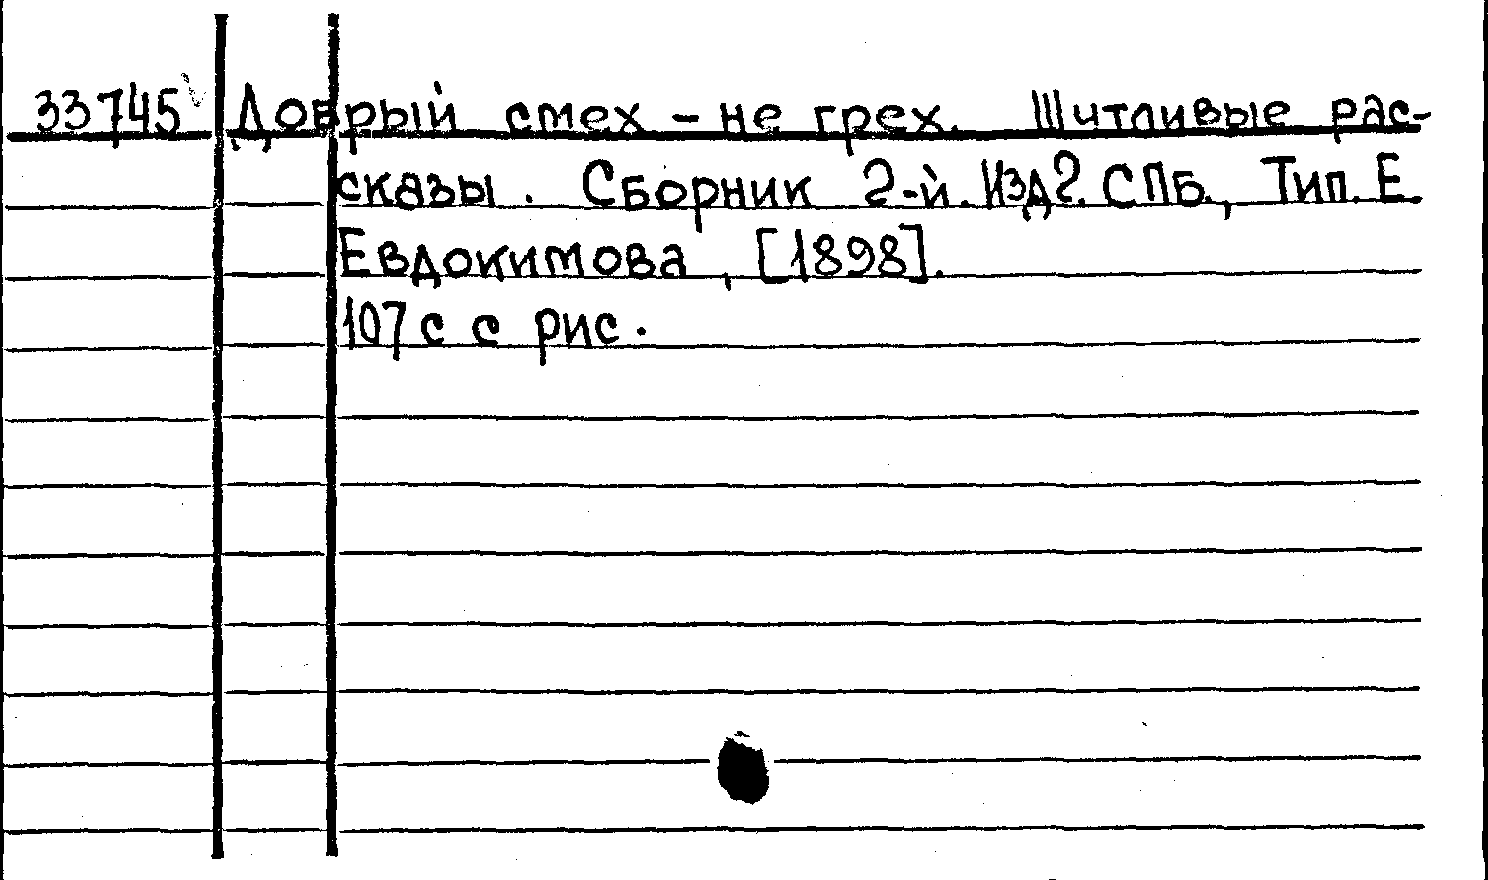 33745 Добрый смех - не грех. Шутливые рас-
сказы. Сборник 2-й. Изд 2. СПБ., Тип. Е.
Евдокимова, [1898].
107 с с рис.